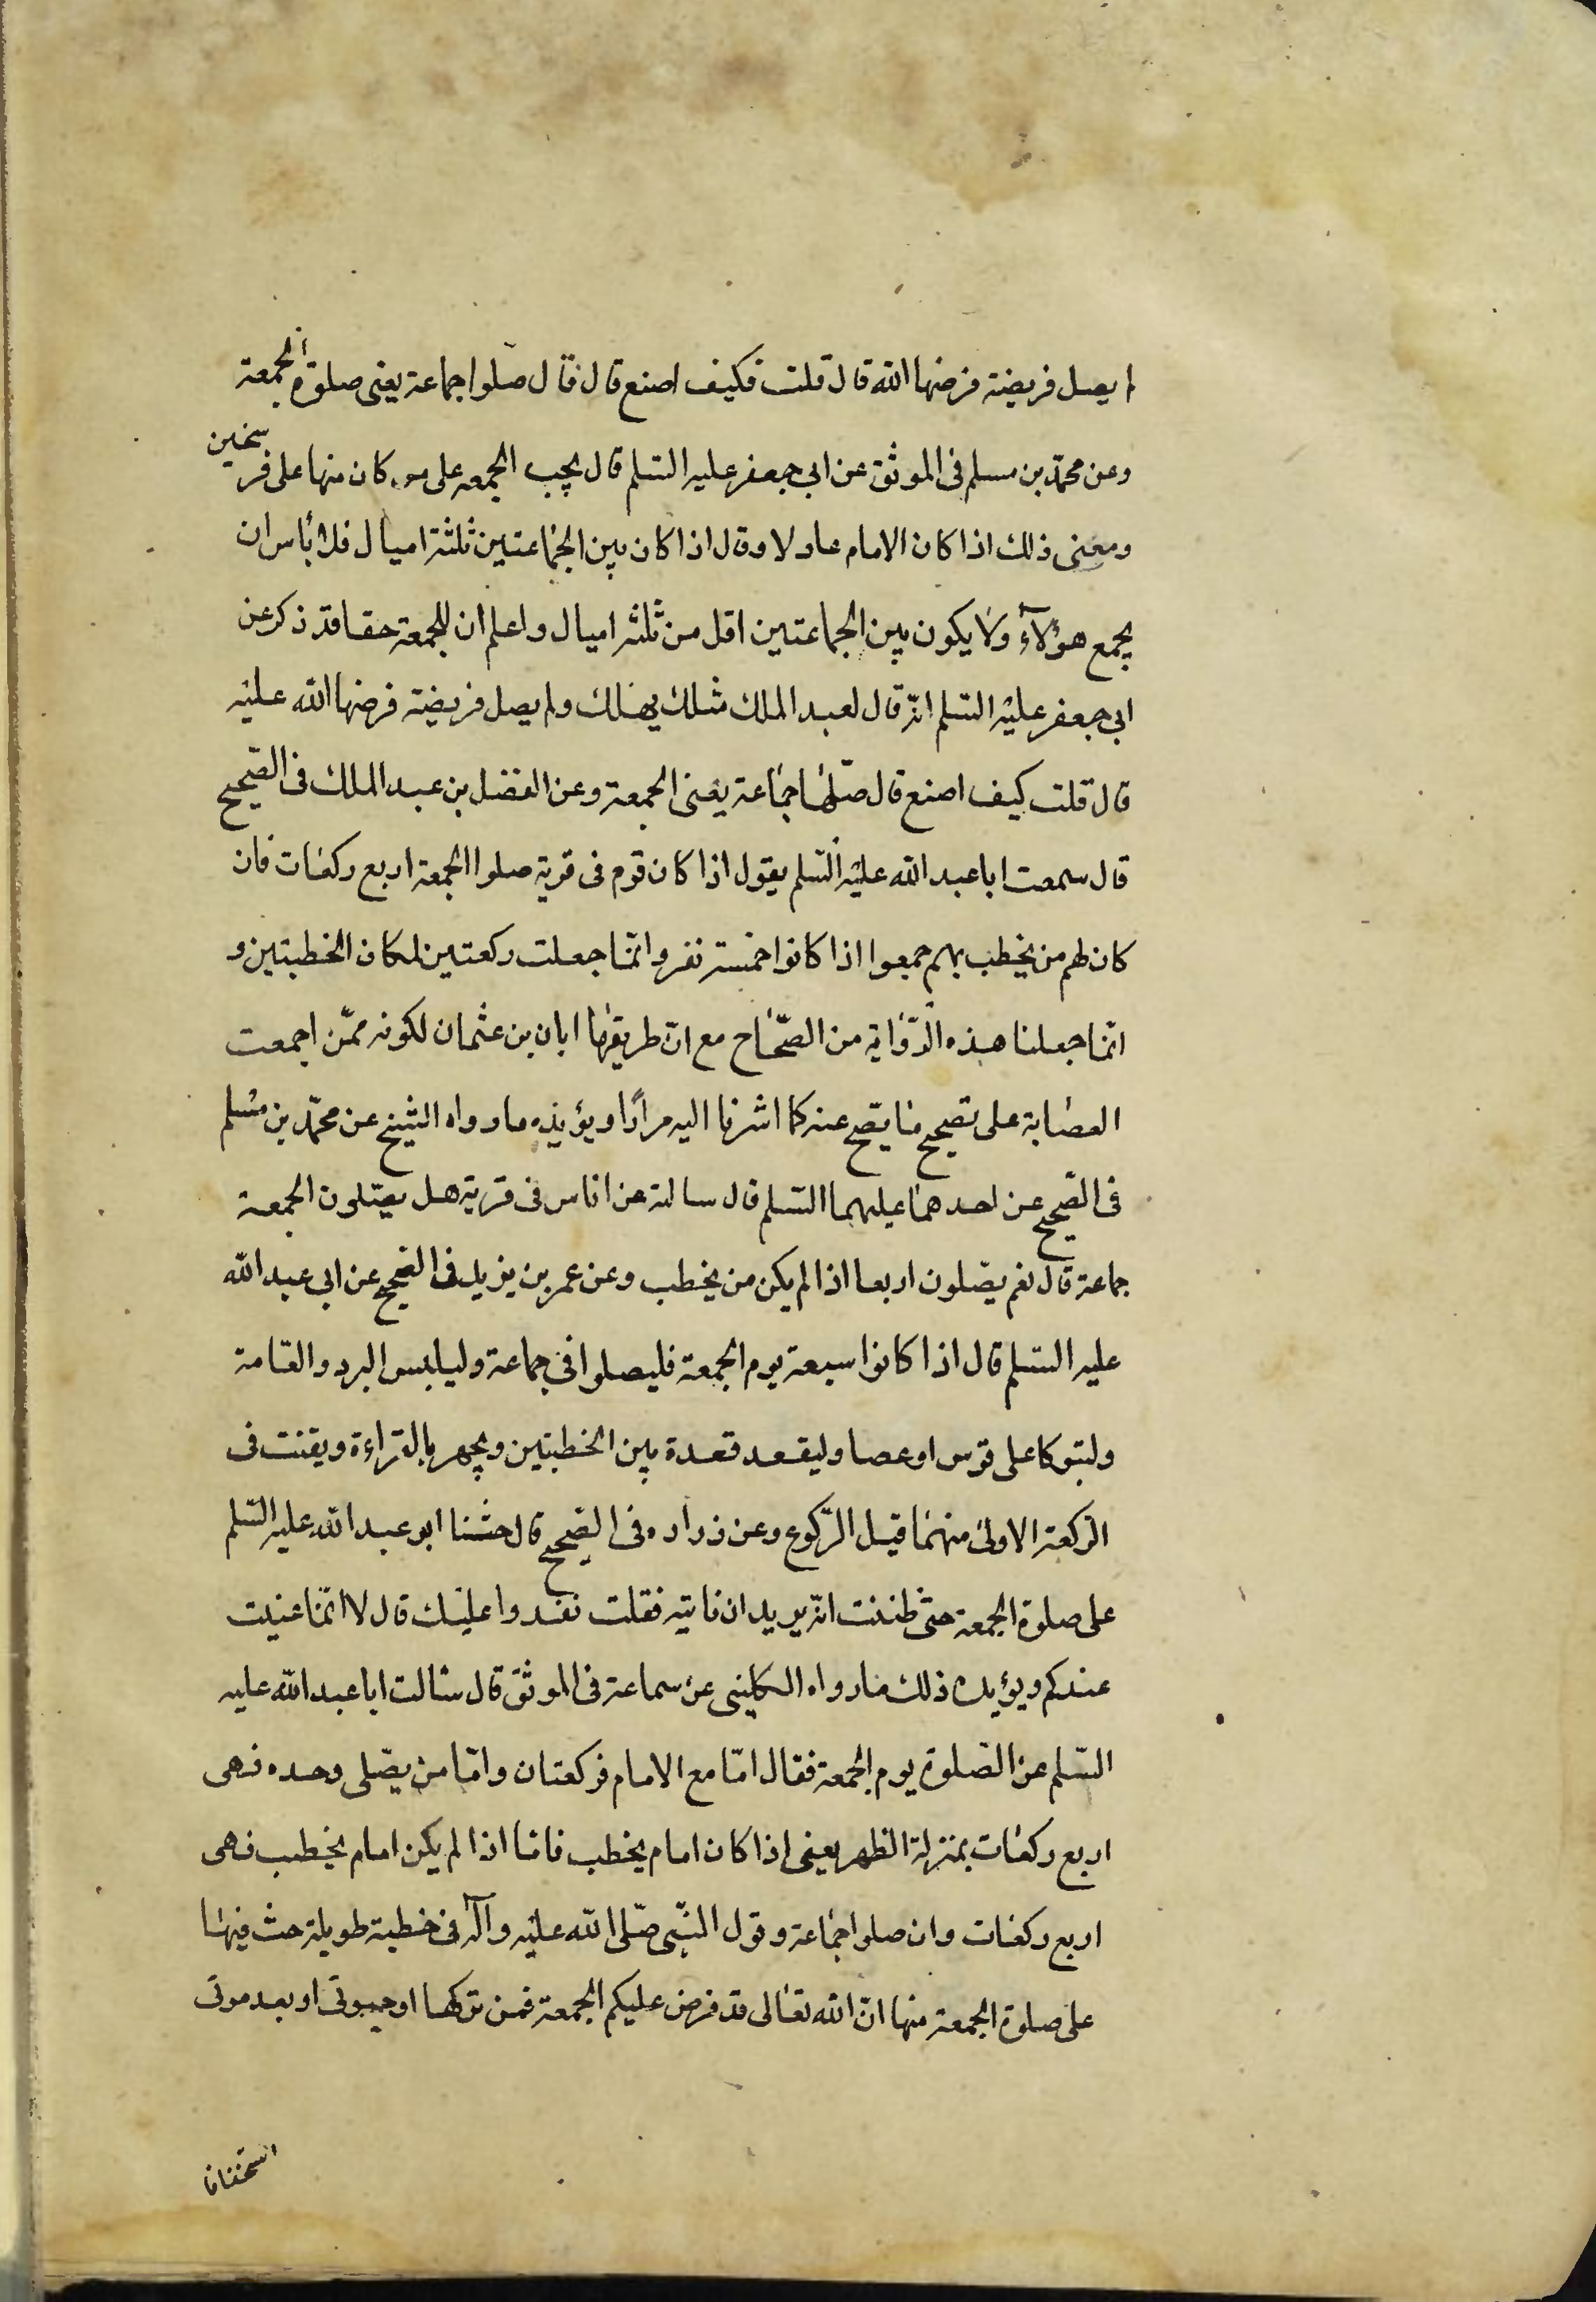 لم يصل فريضة فرضها الله قال قلت فكيف اصنع قال فقال صلوا جماعة يعنى صلوة الجمعة
وعن محمّد بن مسلم فى الموثق عن ابى جعفر عليه السّلم قال يجب الجمعه على من كان منها على فرسخين
ومعنى ذلك اذا كان الامام عادلا وقال اذا كان بين الجماعتين ثلثة اميال فلا بأس ان
يجمع هؤلآء ولا يكون بين الجماعتين اقل من ثلثه اميال واعلم ان للجمعة حقا قد ذكر عن
ابى جعفر عليه السّلم انّه قال لعبد الملك مثلك يهلك ولم يصل فريضة فرضها الله عليه
قال قلت كيف اصنع قال صلّها جماعة يعنى الجمعة وعن الفضل بن عبد الملك فى الصّحيح
قال سمعت ابا عبد الله عليه السّلم يقول اذا كان قوم فى قرية صلوا الجمعة اربع ركعات فان
كان لهم من يخطب بهم جمعوا اذا كانوا خمسة نفر وانّما جعلت ركعتين لمكان الخطبتين و
انّما جعلنا هذه الرّواية من الصّحاح مع انّ طريقها ابان بن عثمان لكونه ممّن اجمعت
العصابة على تصحيح ما يصّح عنه كما اشرنا اليه مرارًا ويؤيده ما رواه الشيخ عن محمّد بن مسلم
فى الصّحيح عن احدهما عليهما السّلم قال سالته عن اناس فى قرية هل يصّلون الجمعة
جماعة قال نعم يصّلون اربعا اذا لم يكن من يخطب وعن عمر بن يزيد فى الصّحيح عن ابى عبد الله
عليه السّلم قال اذا كانوا سبعة يوم الجمعة فليصلوا فى جماعة وليلبس البرد والعّامة
وليتوكا على قوس او عصا وليقعد قعدة بين الخطبتين ويجهر بالقراءة ويقنت فى
الرّكعة الاولى منهما قبل الرّكوع وعن زراره فى الصّحيح قال حثنا ابو عبد الله عليه السّلم
على صلوة الجمعة حتّى ظننت انّه يريد ان ناتيه فقلت نغدوا عليك قال لا انّما عنيت
عندكم ويؤيد ذلك ما رواه الكلينى عن سماعة فى الموثق قال سالت ابا عبد الله عليه
السّلم عن الصّلوة يوم الجمعة فقال امّا مع الامام فركعتان وامّا من يصّلى وحده فهى
اربع ركعات بمنزلة الظهر يعنى اذا كان امام يخطب فامّا اذا لم يكن امام يخطب فهى
اربع ركعات وان صلوا جماعة وقول النّبى صّلى الله عليه وآله فى خطبة طويلة حث فيها
على صلوة الجمعة منها انّ الله تعالى قد فرض عليكم الجمعة فمن تركها او حيوتى او بعد موتى
استخفافا